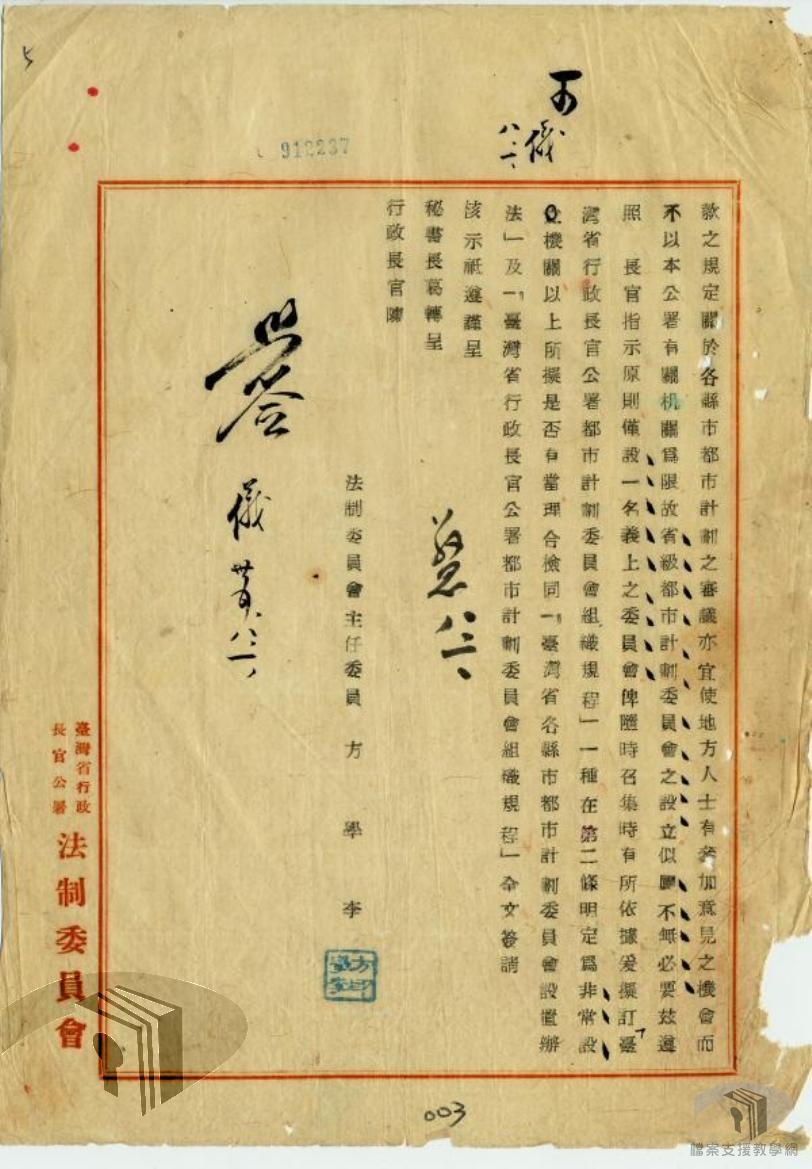 5
912237
可 儀
八、一、
款之規定關於各縣市都市計劃之審議亦宜使地方人士有參加意見之機會而
不以本公署有關机關爲限故省級都市計劃委員會之設立似屬不無必要玆遵
照 長官指示原則僅設一名義上之委員會俾隨時召集時有所依據爰擬訂「臺
灣省行政長官公署都市計劃委員會組織規程」一種在第二條明定爲非常設
機關以上所擬是否有當理合檢同「臺灣省各縣市都市計劃委員會設置辦
法」及「臺灣省行政長官公署都市計劃委員會組織規程」全文簽請
核示祗遵謹呈
秘書長葛轉呈
行政長官陳
法制委員會主任委員 方 學 李
儀
臺灣省行政
長官公署
法制委員會
003
檔案支援教學網